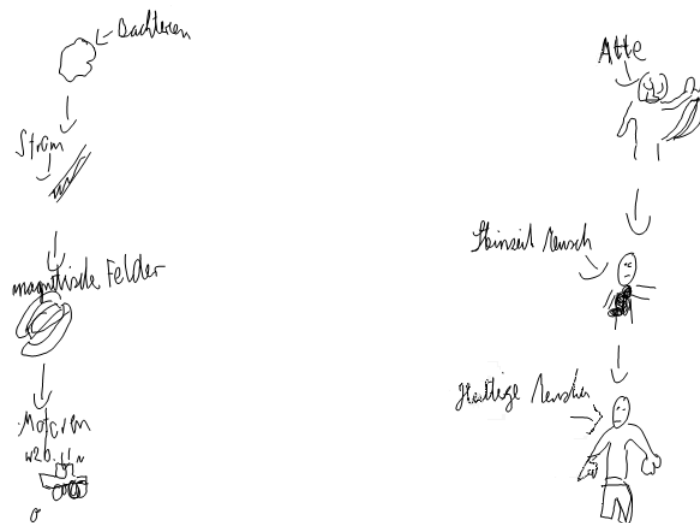 Bachteren
Strom
magnetische Felder
Motoren
Affe
Steinzeit Mensch
Heutige Menschen